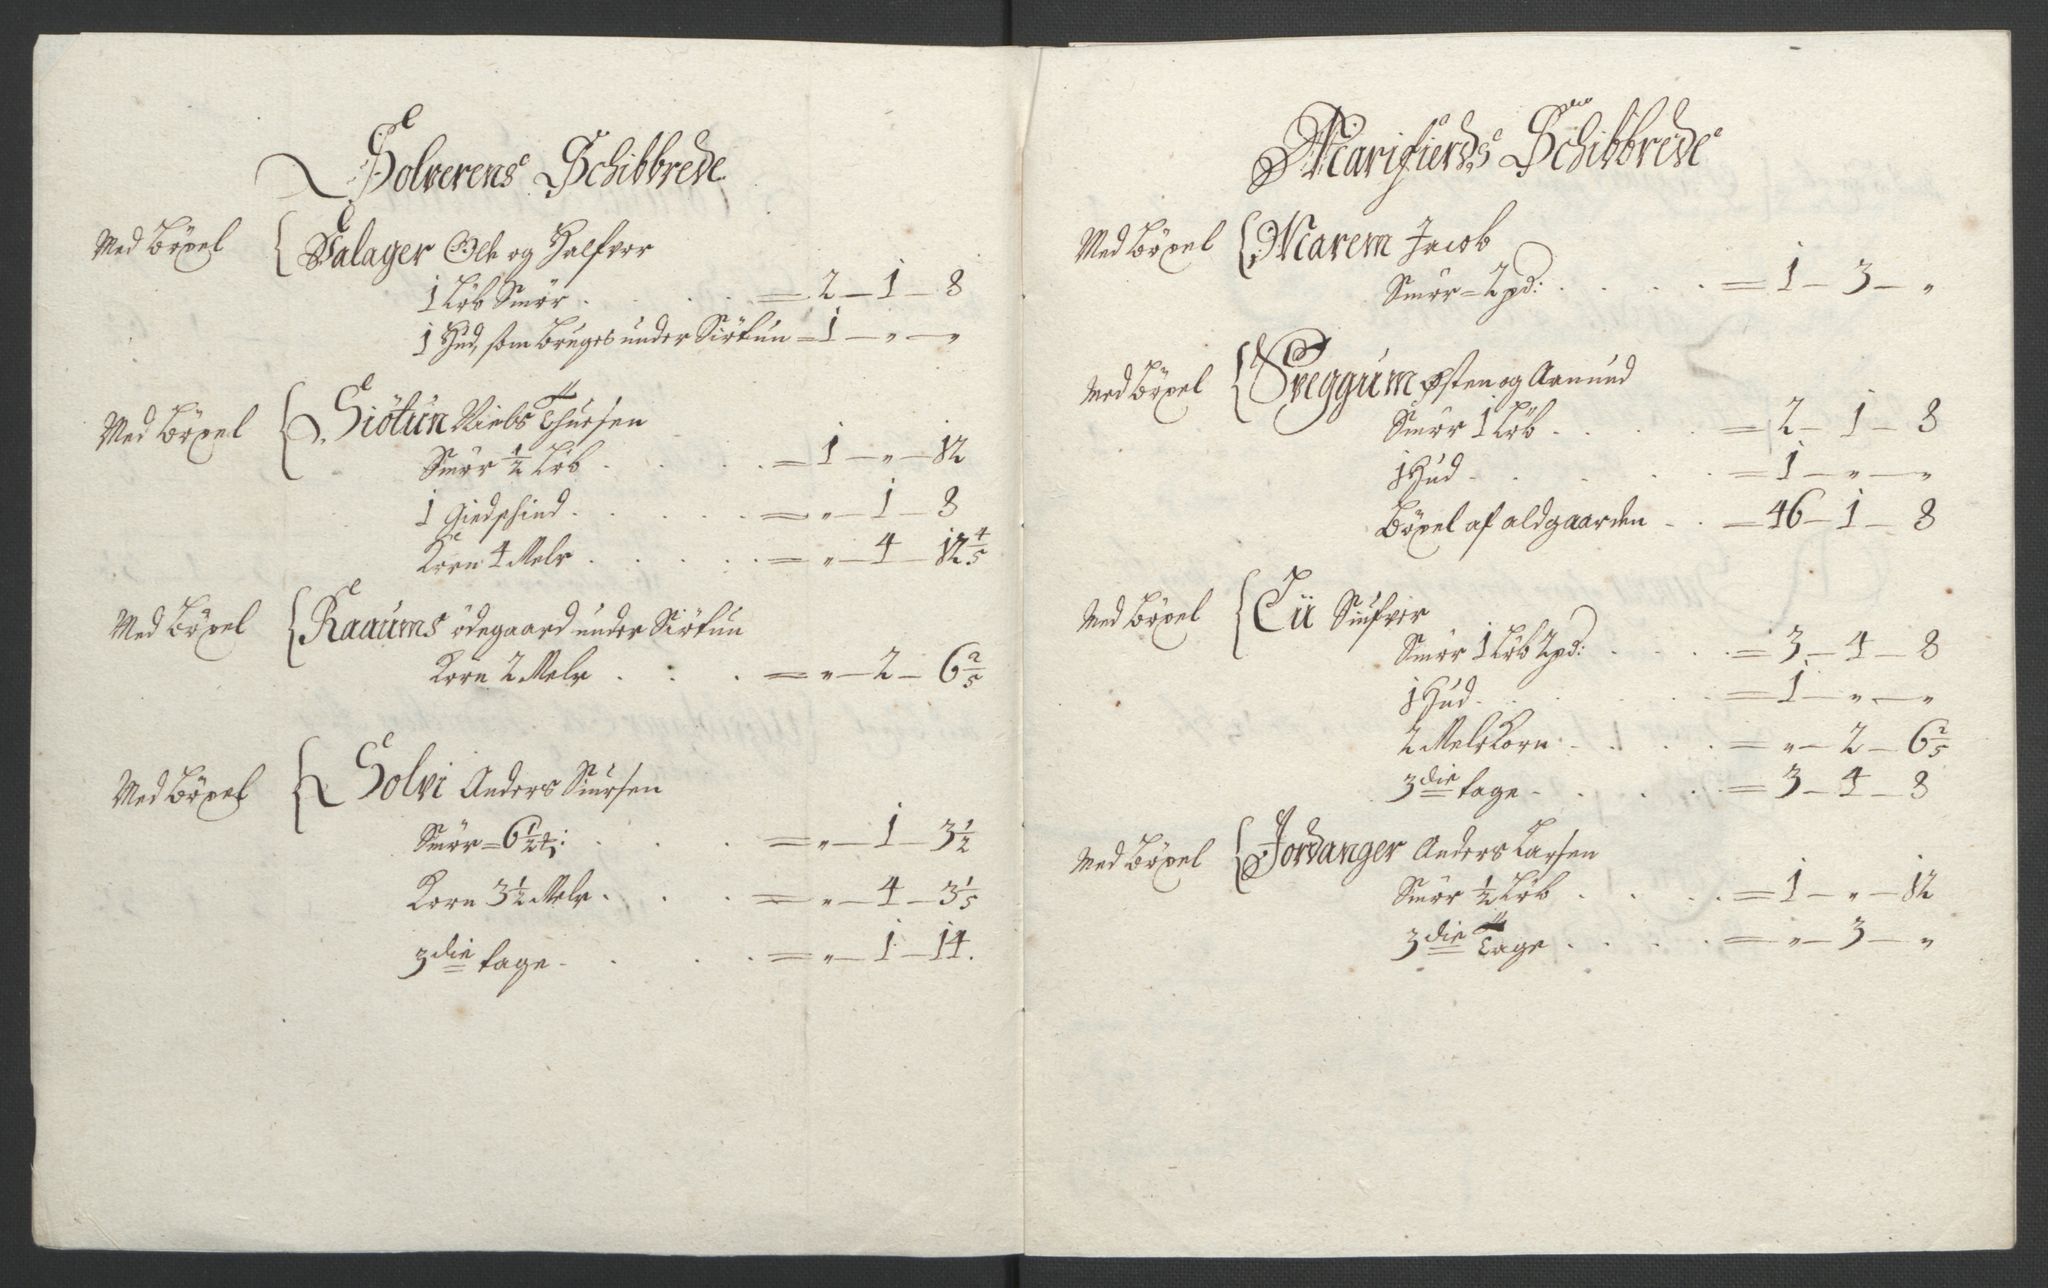 Solverens Schibbrede
Med Böxel { Talager Ole og Halfvor
1 Löb Smör . . . . = 2 – 1 – 8
1 Hud, som bruges under Siötun = 1 – „ – „
Med Böxel { Siötun Niels Thuesen
Smör ½ Löb . . . . = 1 – „ – 12
1 Giedschind . . . . = „ – 1 – 8
Korn 4 Meler . . . . = „ – 4 – 12 4/5
Med Böxel { Raaums ödegaard under Siötun
Korn 2 Meler . . . = „ – 2 – 6 2/5
Med Böxel { Solvi Anders Siursen
Smör = 6½ . . . = „ – 1 – 3½
Korn 3½ Meler . . . = „ – 4 – 3 1/5
3die tage . . . . = „ – 1 – 14.
Marifierds Schibbrede
Med Böxel { Marem Jacob
Smör = 2 pd: . . . . = 1 – 3 – „
Med Böxel { Sveggum Østen og Amund
Smör 1 Löb . . . . = 2 – 1 – 8
1 Hud . . . . = 1 – „ – „
Böxel af aldgaarden . . = 46 – 1 – 8
Med Böxel { Tii Siufver
Smör 1 Löb 2 pd: . . . . = 3 – 4 – 8
1 Hud . . . . = 1 – „ – „
2 Meler Korn . . . . = „ – 2 – 6 2/5
3die tage . . . . = 3 – 4 – 8
Med Böxel { Jordanger Anders Larsen
Smör ½ Löb . . . . = 1 – „ – 12
3die Tage . . . . = „ – 3 – „